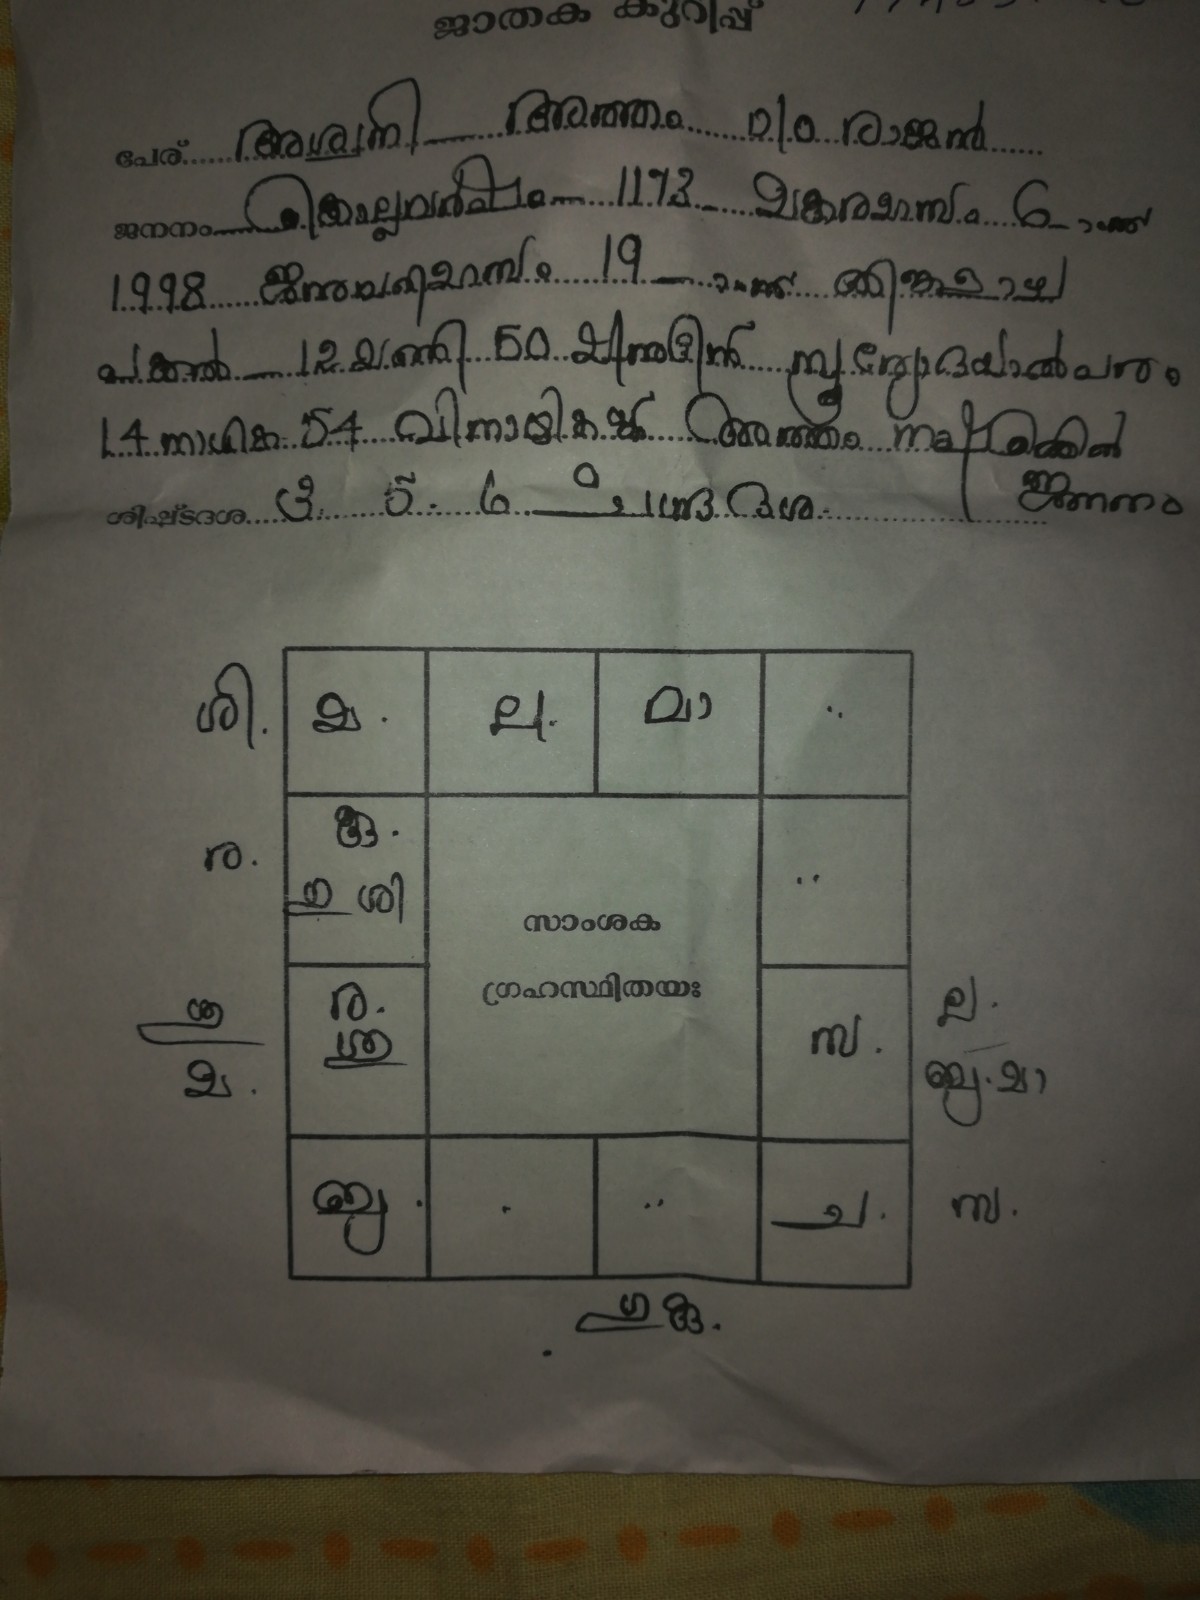 ജാതക കുറിപ്പ്
പേര്...... അശ്വനി ...... അത്തം ...... D/O രാജൻ ......
ജനനം ...... കൊല്ലവർഷം ...... 1173 ...... മകരമാസം ...... 6 ാം
1998 ...... ജനുവരിമാസം ...... 19 ...... ാം ...... തിങ്കളാഴ്ച
പകൽ ...... 12 മണി ...... 50 മിനുട്ടിൻ ...... സൂര്യോദയാൽപരം
14 നാഴിക 54 വിനാഴികക്ക് ...... അത്തം നക്ഷത്രത്തിൽ
ജനനം
ശിഷ്ടദശ ...... 3. 5. 6 ചന്ദ്ര ദശ
ശി. മ. ല. മാ
ര. കു. ഗു ശി
സാംശക
ഗ്രഹസ്ഥിതയഃ
ശു മ. ര. ശു സ. ല. ബു. മാ
ബു. ച. സ.
ഗു കു.